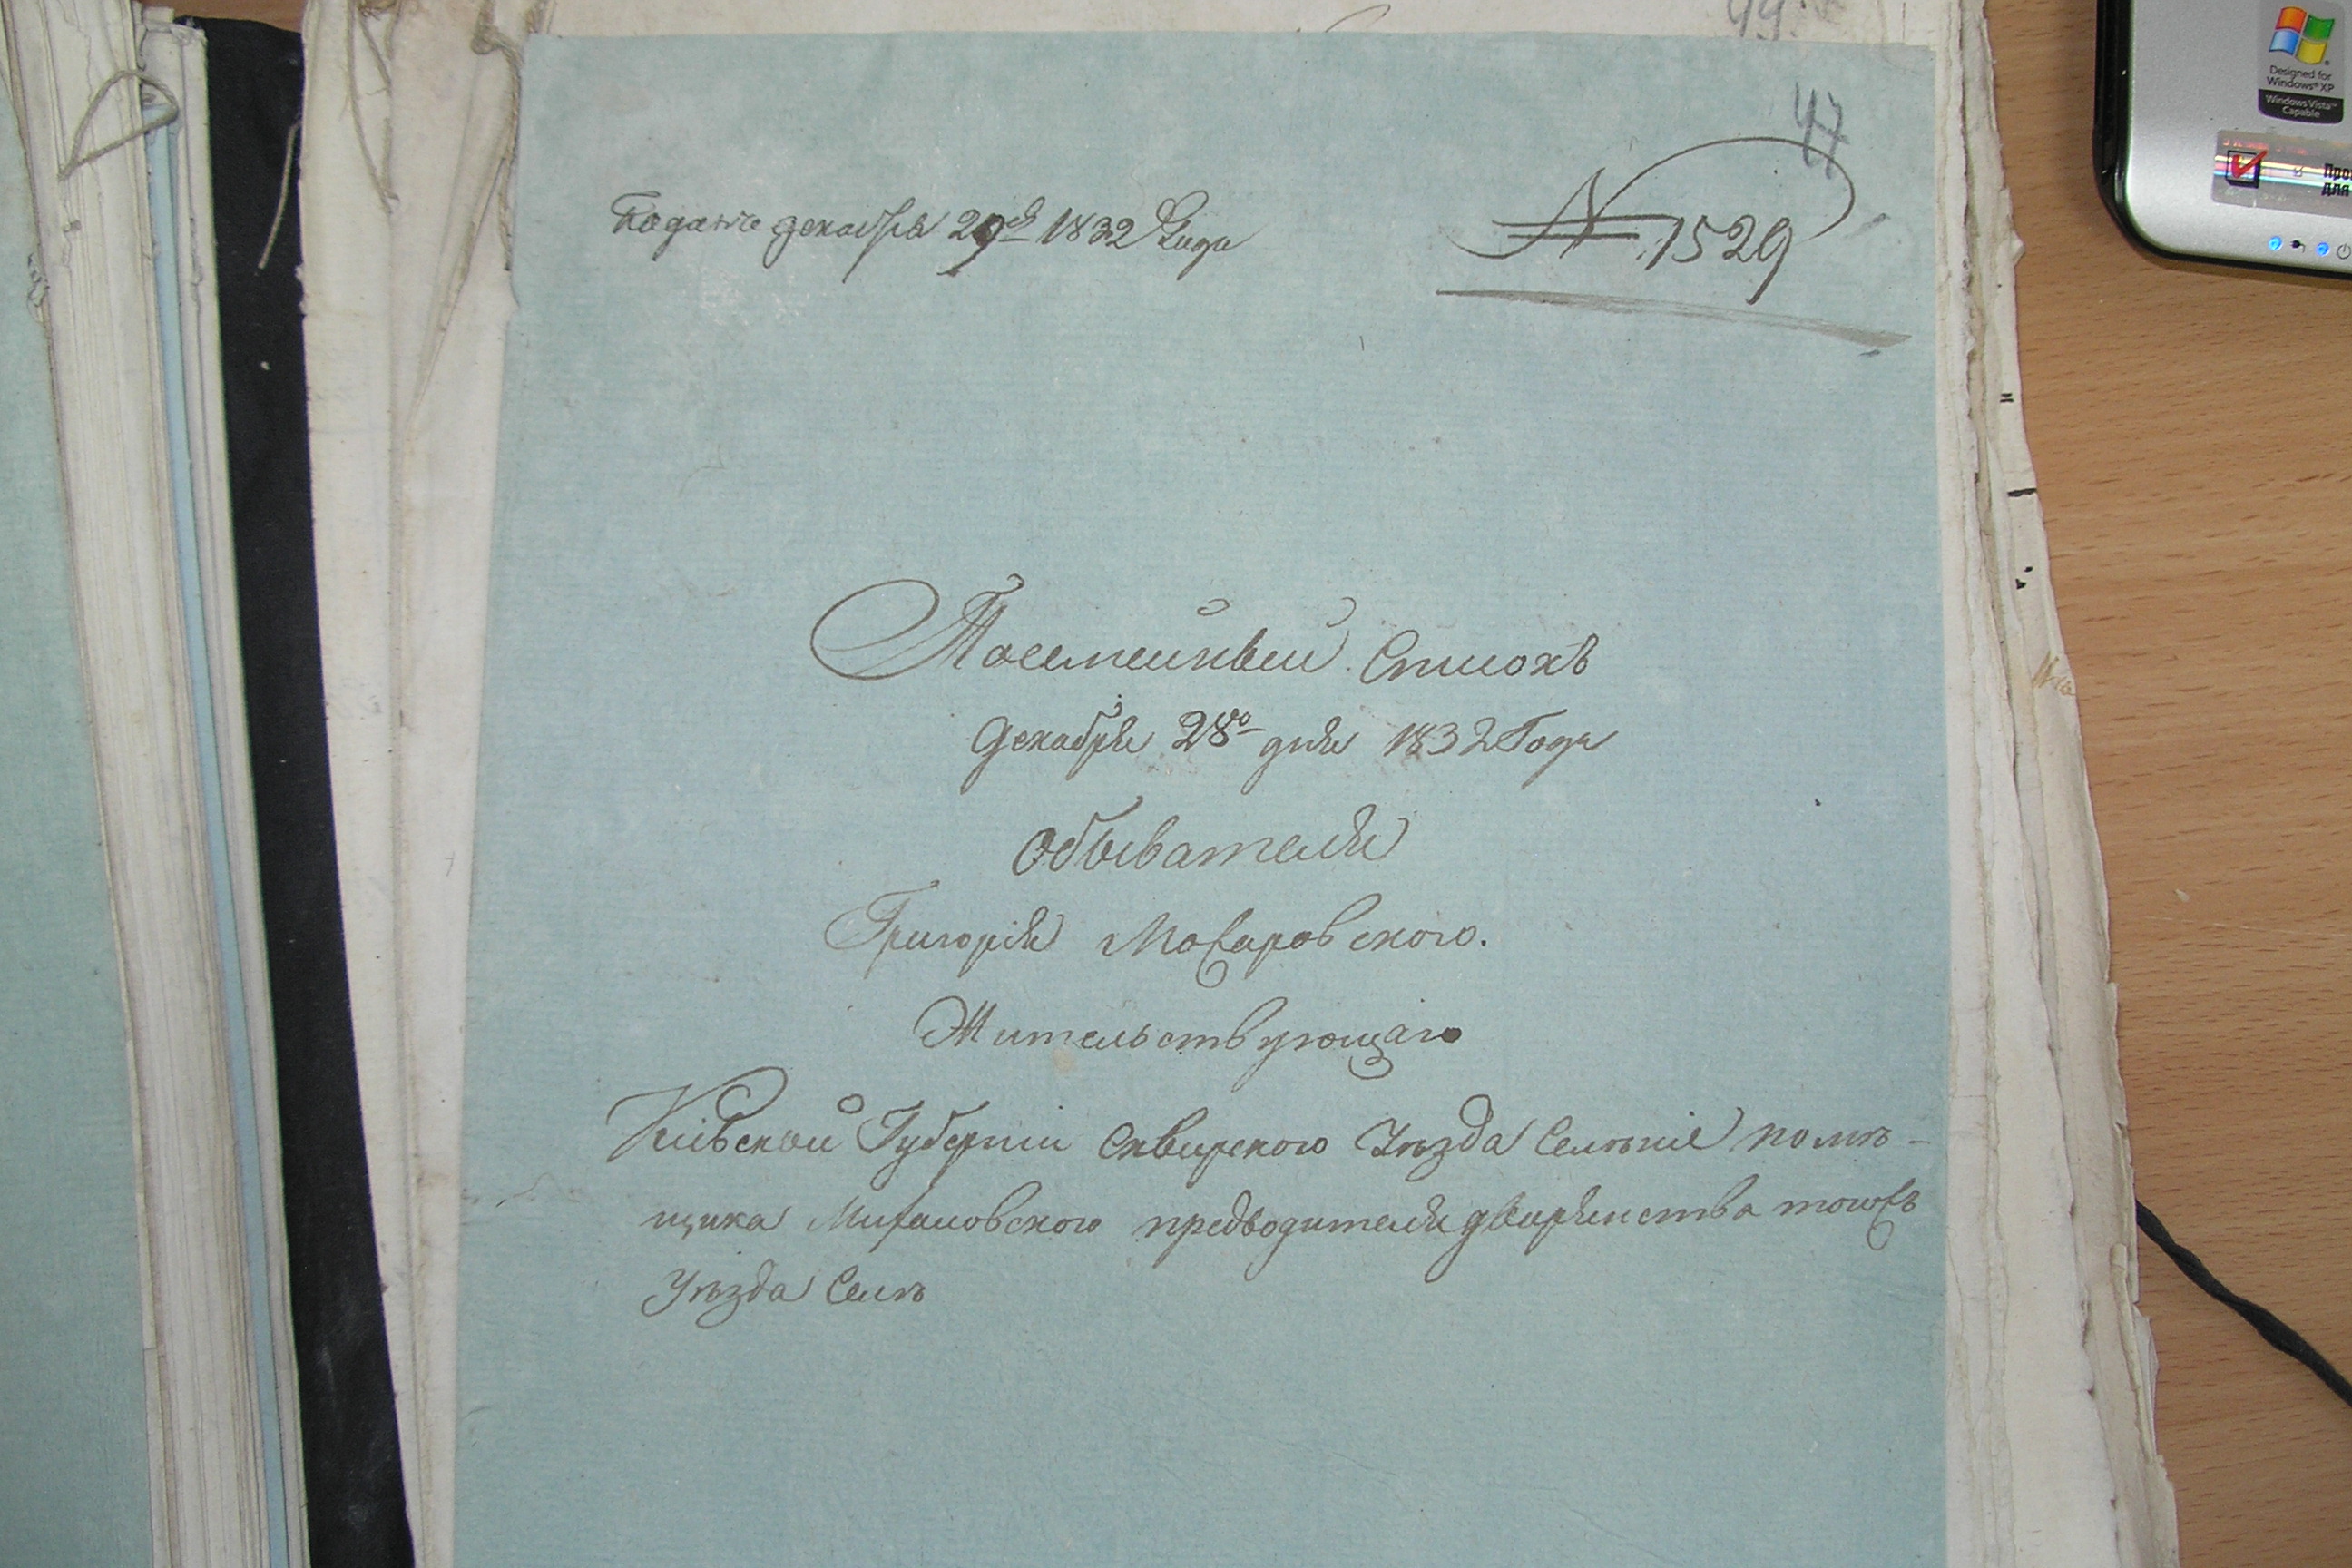 47
Подано декабря 29го 1832 Года
№ 1529
Посемейный Списокъ
Декабря 28го дня 1832 Года
Обывателя
Григорія Можаровского.
Жительствующаго
Кіевской Губерніи Сквирского Уѣзда помѣ-
щика предводителя дворянства тогожъ
Уѣзда
Designed for
Windows® XP
Windows Vista™
Capable